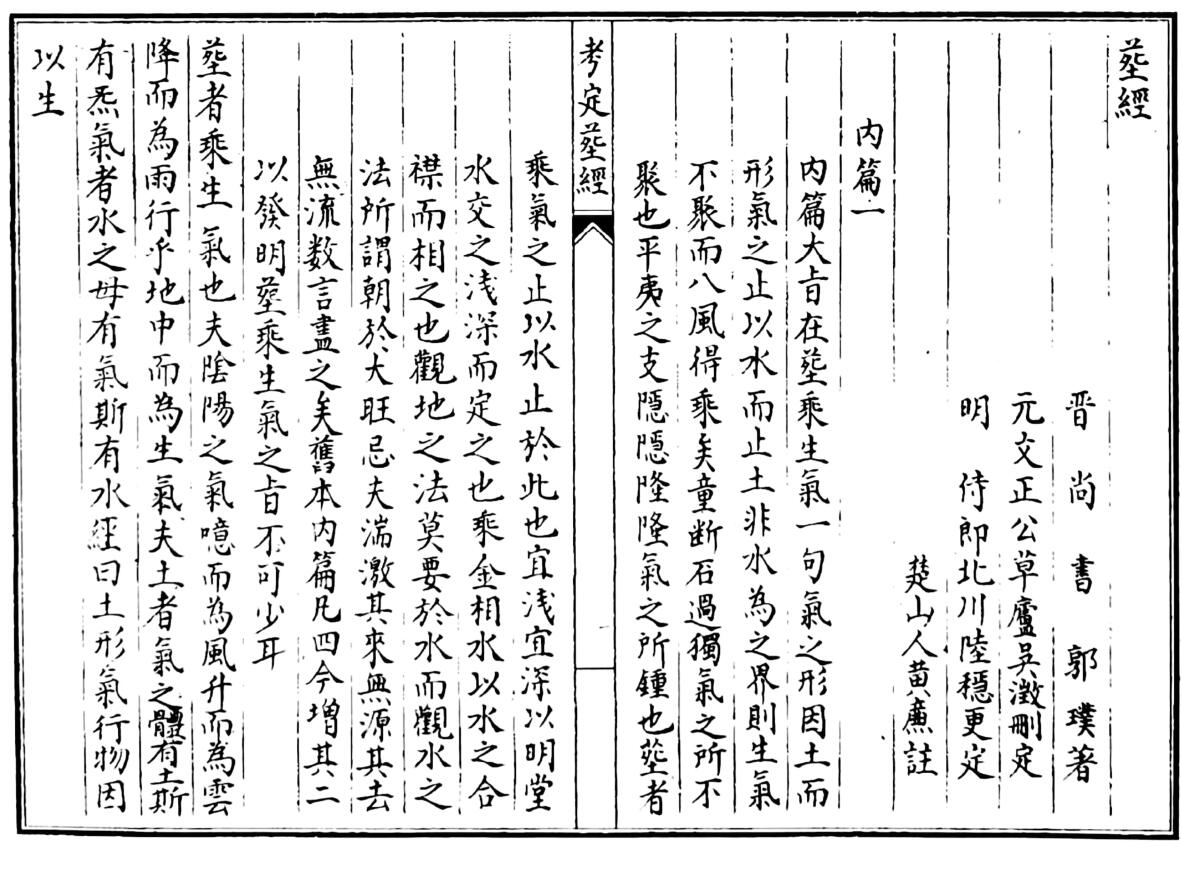 塟經
晋尚書郭璞著
元文正公草廬吳澂刪定
明侍郎北川陸穩更定
楚山人黄亷註
内篇一
内篇大㫖在塟乘生氣一句氣之形因土而
形氣之止以水而止土非水為之界則生氣
不聚而八風得乘矣童断石過獨氣之所不
聚也平夷之支隠隠隆隆氣之所鍾也塟者
考定塟經
乘氣之止以水止於此也宜浅宜深以明堂
水交之浅深而定之也乘金相水以水之合
襟而相之也觀地之法莫要於水而觀水之
法所謂朝於大旺忌夫湍激其來無源其去
無流数言盡之矣舊本内篇凡四今增其二
以發明塟乘生氣之㫖不可少耳
塟者乘生氣也夫陰陽之氣噫而為風升而為雲
降而為雨行乎地中而為生氣夫土者氣之體有土斯
有炁氣者水之母有氣斯有水經曰土形氣行物因
以生